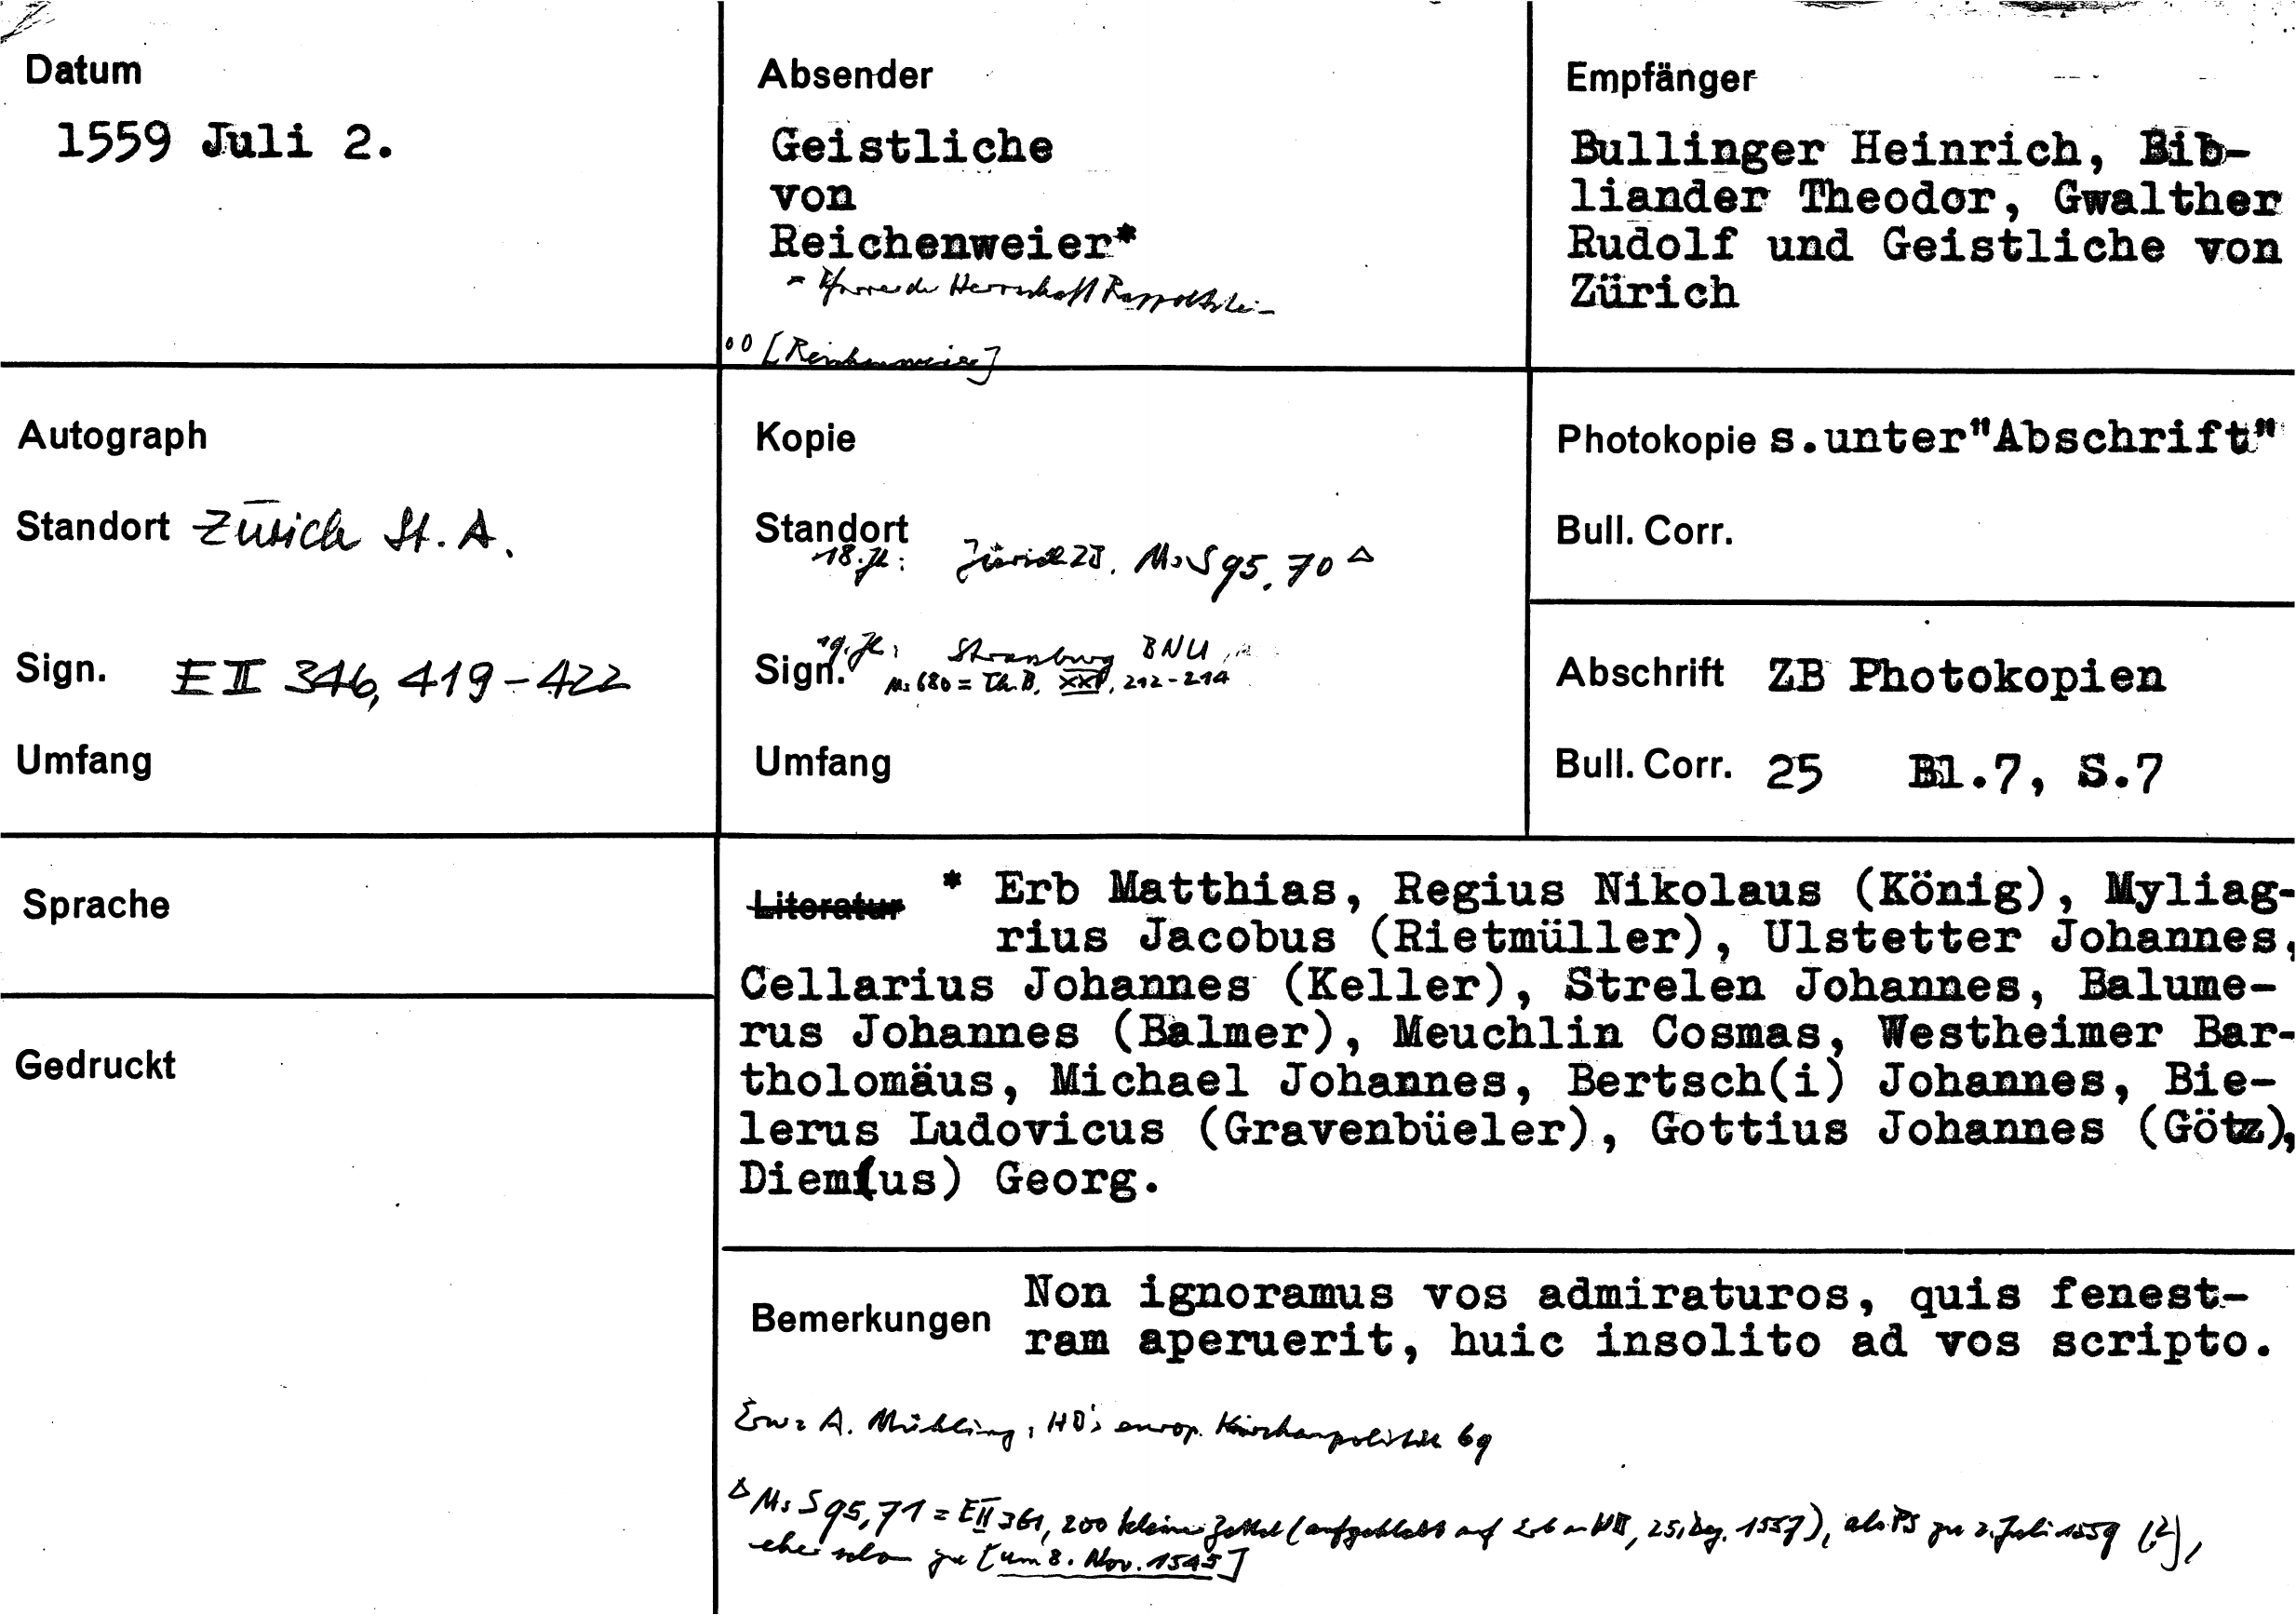 Datum
1559 Juli 2.
Absender
Geistliche
von
Reichenweier*
= Pfarrer der Herrschaft Rappoltstein
°° [Reichenweier]
Empfänger
Bullinger Heinrich, Bib-
liander Theodor, Gwalther
Rudolf und Geistliche von
Zürich
Autograph
Standort Zürich St. A.
Sign. E II 346, 419-422
Umfang
Kopie
Standort
18. Jh.: Zürich ZB. Ms S 95, 70 Δ
Sign. 19. Jh.: Strassburg BNU
Ms 680 = Th. B. 212-214
Umfang
Photokopie s.unter"Abschrift"
Bull. Corr.
Abschrift ZB Photokopien
Bull. Corr. 25 Bl.7, S.7
Sprache
Gedruckt
Literatur * Erb Matthias, Regius Nikolaus (König), Myliag-
rius Jacobus (Rietmüller), Ulstetter Johannes,
Cellarius Johannes (Keller), Strelen Johannes, Balume-
rus Johannes (Balmer), Meuchlin Cosmas, Westheimer Bar-
tholomäus, Michael Johannes, Bertsch(i) Johannes, Bie-
lerus Ludovicus (Gravenbüeler), Gottius Johannes (Götz),
Diem(us) Georg.
Bemerkungen Non ignoramus vos admiraturos, quis fenest-
ram aperuerit, huic insolito ad vos scripto.
Erw: A. Mühling, HB's europ. Kirchenpolitik 69
Δ Ms S 95, 71 = E II 361, 200 kleiner Zettel (aufgeklebt auf Erb an HB, 25. Dez. 1557), als PS zu 2. Juli 1559 (?),
eher schon zu [um 8. Nov. 1545]